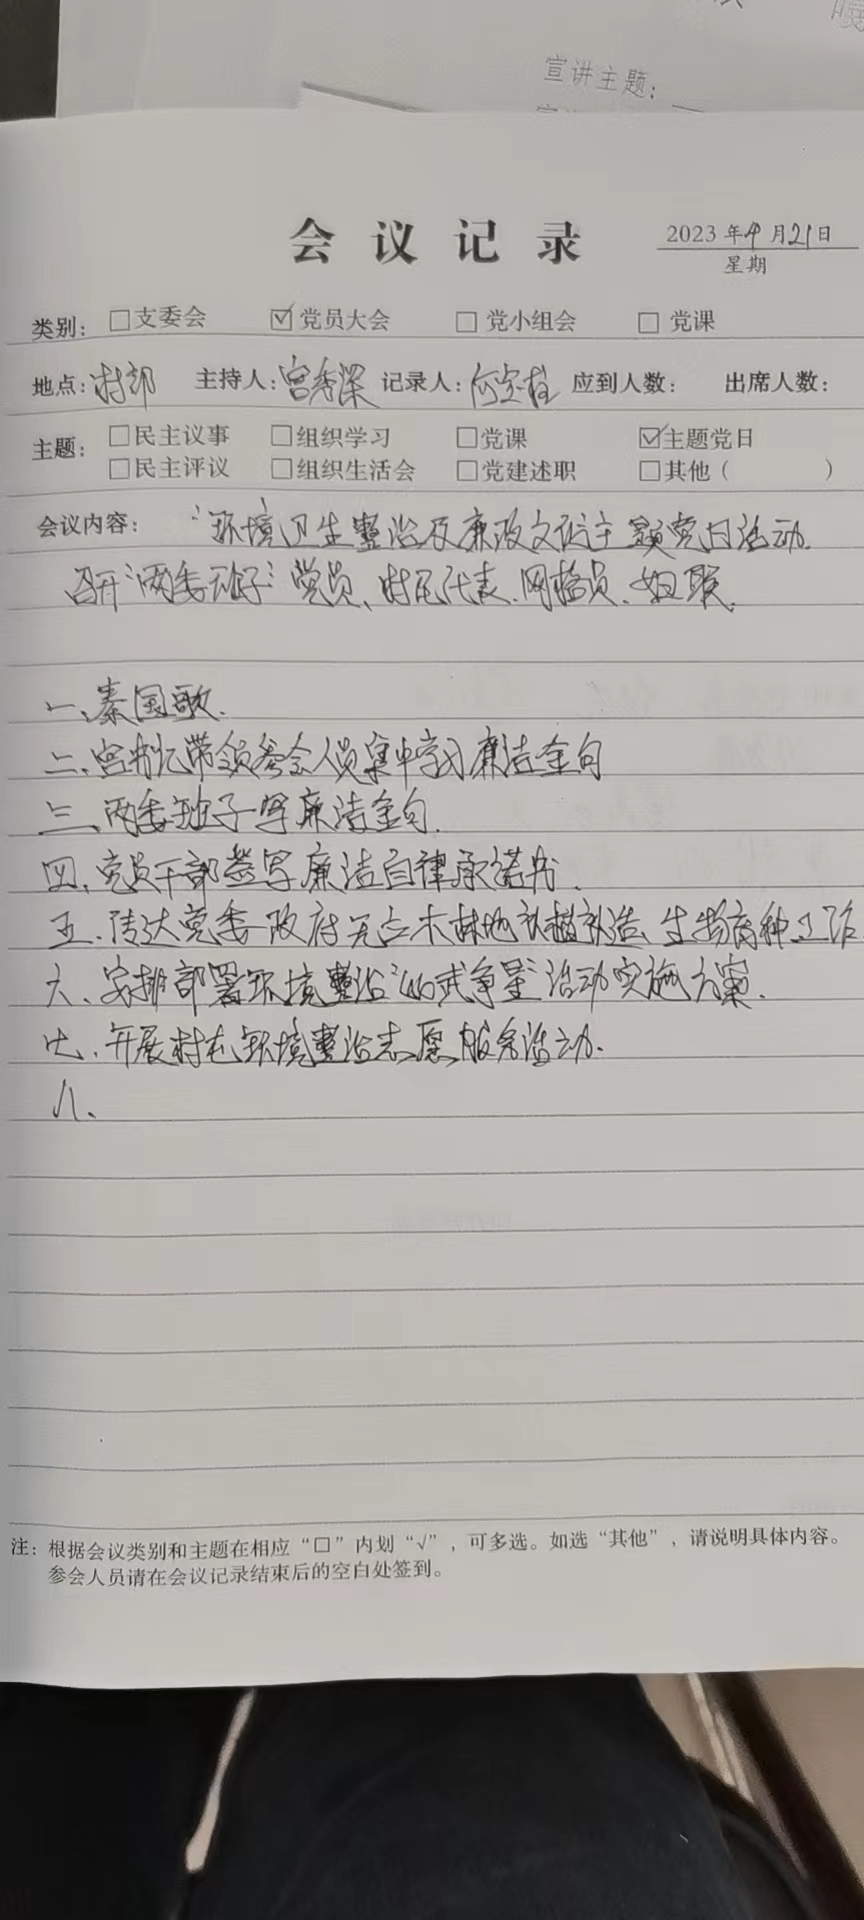 宣讲主题：
会议记录
2023年4月21日
星期
类别：□支委会 ☑党员大会 □党小组会 □党课
地点：村部 主持人：宫秀梁 记录人： 应到人数： 出席人数：
主题：□民主议事 □组织学习 □党课 ☑主题党日
□民主评议 □组织生活会 □党建述职 □其他（ ）
会议内容：“环境卫生整治及廉政文化主题党日活动.
召开“两委班子”党员、村民代表、网格员、妇联.
一、奏国歌.
二、宫书记带领参会人员集中学习廉洁金句
三、两委班子写廉洁金句.
四、党员干部签写廉洁自律承诺书.
五、传达党委政府无立木林地补植补造、生物育种工作
六、安排部署环境整治“ 争星”活动实施方案.
七、开展村屯环境整治志愿服务活动.
八、
注：根据会议类别和主题在相应“□”内划“√”，可多选。如选“其他”，请说明具体内容。
参会人员请在会议记录结束后的空白处签到。